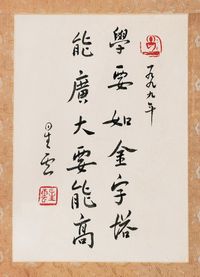 一九九九年
學要如金字塔
能廣大要能高
星雲